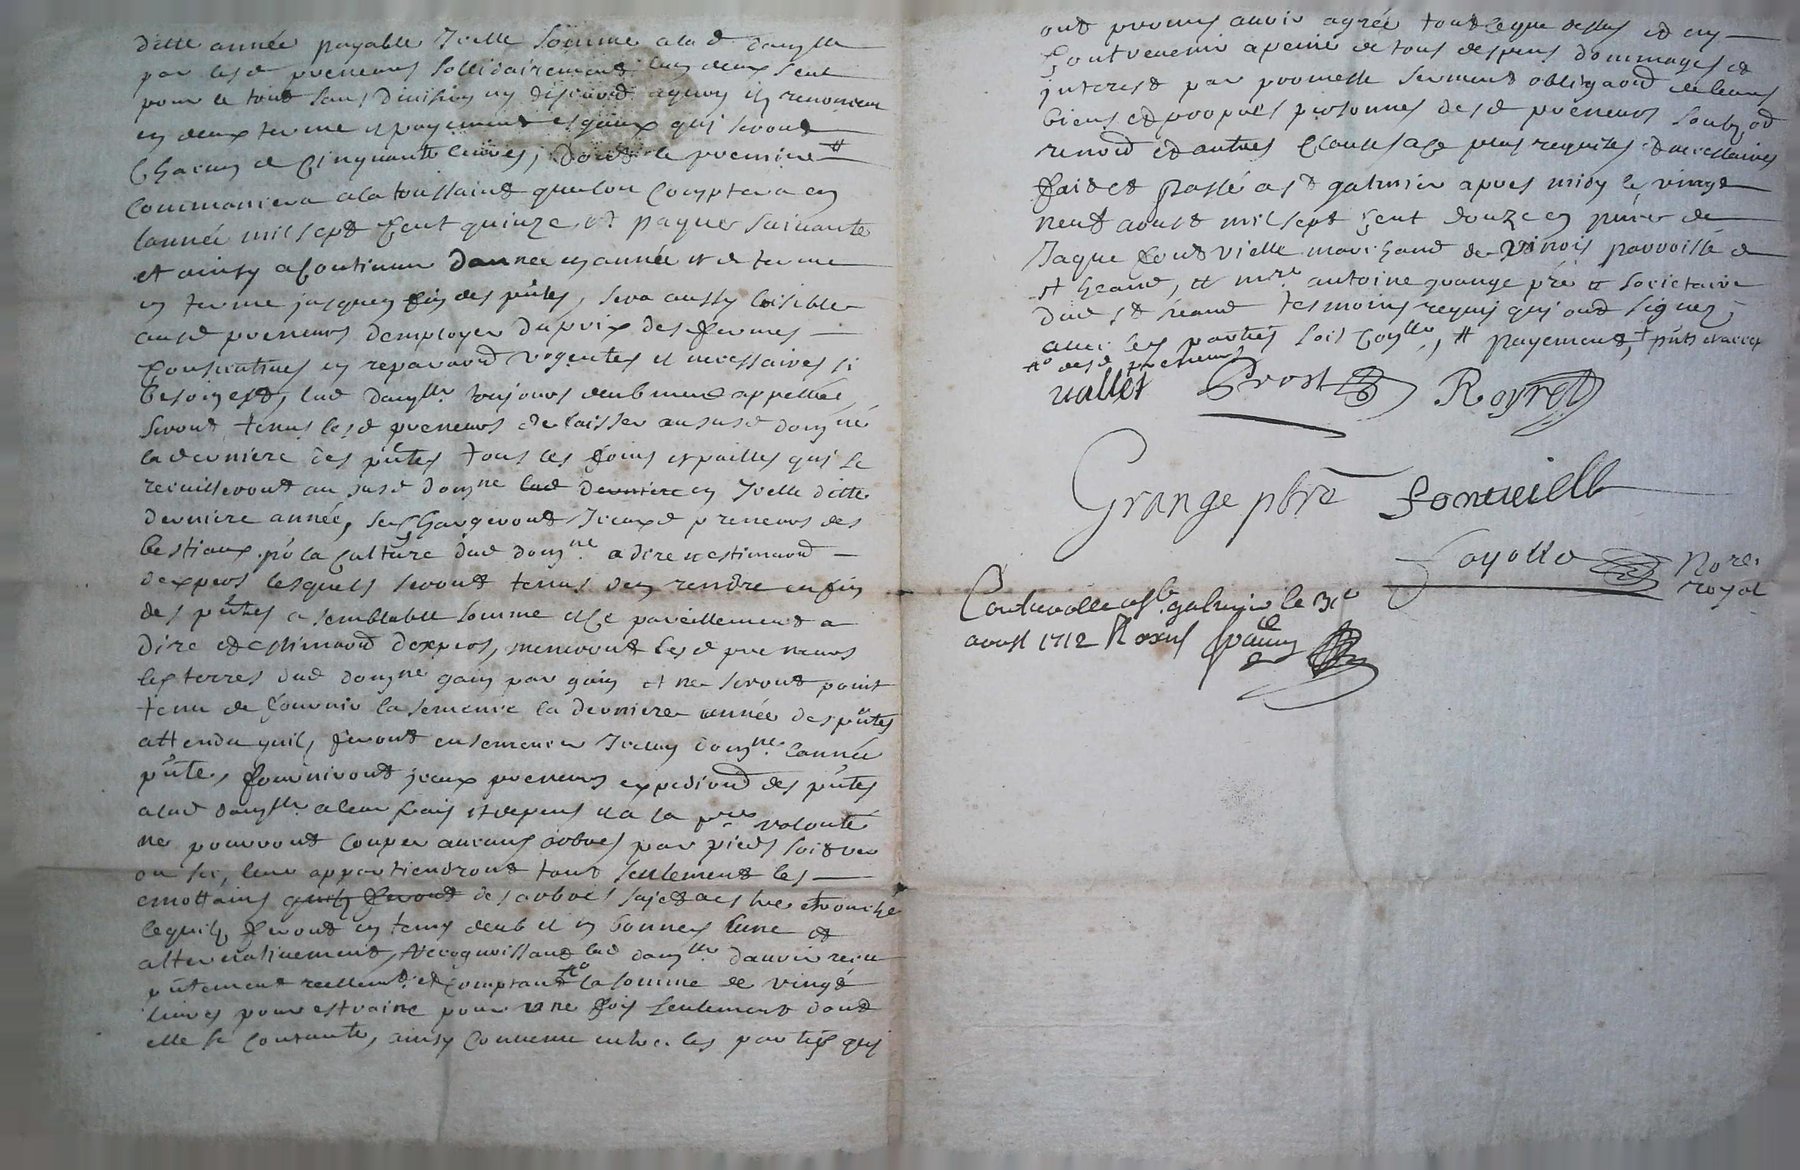 ditte année payable Icelle somme a lad damlle
par lesd preneurs sollidairement lun deux seul
pour le tout sans division ny discution aquoy ils renoncent
en deux terme et payement esgaux qui seront
chacun de cinquante livres, dont le premier #
commancera a la toussaint que lon comptera en
lannée mil sept cent quinze, et paques suivante
et ainsy a continuer dannée en année et de terme
en terme jusques fin des pntes, sera aussy loisible
ausd preneurs demployer du prix des fermes —
en reparaon urgentes et necessaires si
besoing est, lad damlle toujours deubment appellée,
seront tenus lesd preneurs de laisser au susd domne
la derniere des pntes tous les foins et pailles qui se
recuilleront au susd domne lad derniere en Icelle ditte
derniere année, se chargeront Iceuxd preneurs des
bestiaux pr la culture dud domne a dire et estimaon —
dexpers lesquels seront tenus den rendre en fin
des pntes a semblable somme et ce pareillement a
dire et estimaon dexpers, meneront lesd preneurs
les terres dud domne gain par gain et ne seront point
tenu de fournir la semence la derniere année des pntes
attendu quils feront ensemencer Iceluy domne lannée
pnte, fourniront iceux preneurs expedion des pntes
a lad damlle a leur frais et depens et a la pre volonté
ne pourront couper aucuns arbres par pieds soit verd
ou sec, leur appartiendront tant seulement les —
emottains quils feront des arbres sujets a estre etronché
ce quils feront en tems deub et en bonne lune et
alternativement, recognoissant lad damlle davoir receu
pntement reellemt et comptant la somme de vingt
livres pour estraine pour une fois seulement dont
elle se contante, ainsy convenu entre les parties qui
ont promis avoir agréé tout ce que dessus et ny
contrevenir a peine de tous despens dommages et
interest par promesse serment obligaon de leurs
biens et propres personnes desd preneurs soub, on
renon et autres clauses a ce plus requises et necessaires
fait et passé a St galmier apres midy le vingt
neuf aoust mil sept cent douze en pnce de
Jaque fontvielle marchand de parroisse de
St heand, et mre antoine grange pre et societaire
dud St heand tesmoins requis qui ont signez
avec les parties soit damlle, # payement, + pnts
Ro desd preneurs
vallet Prost Reyret
Grange pbre Fontvieille
fayolle Nore royal
Controllé a St galmier le 31e
aoust 1712 Receu